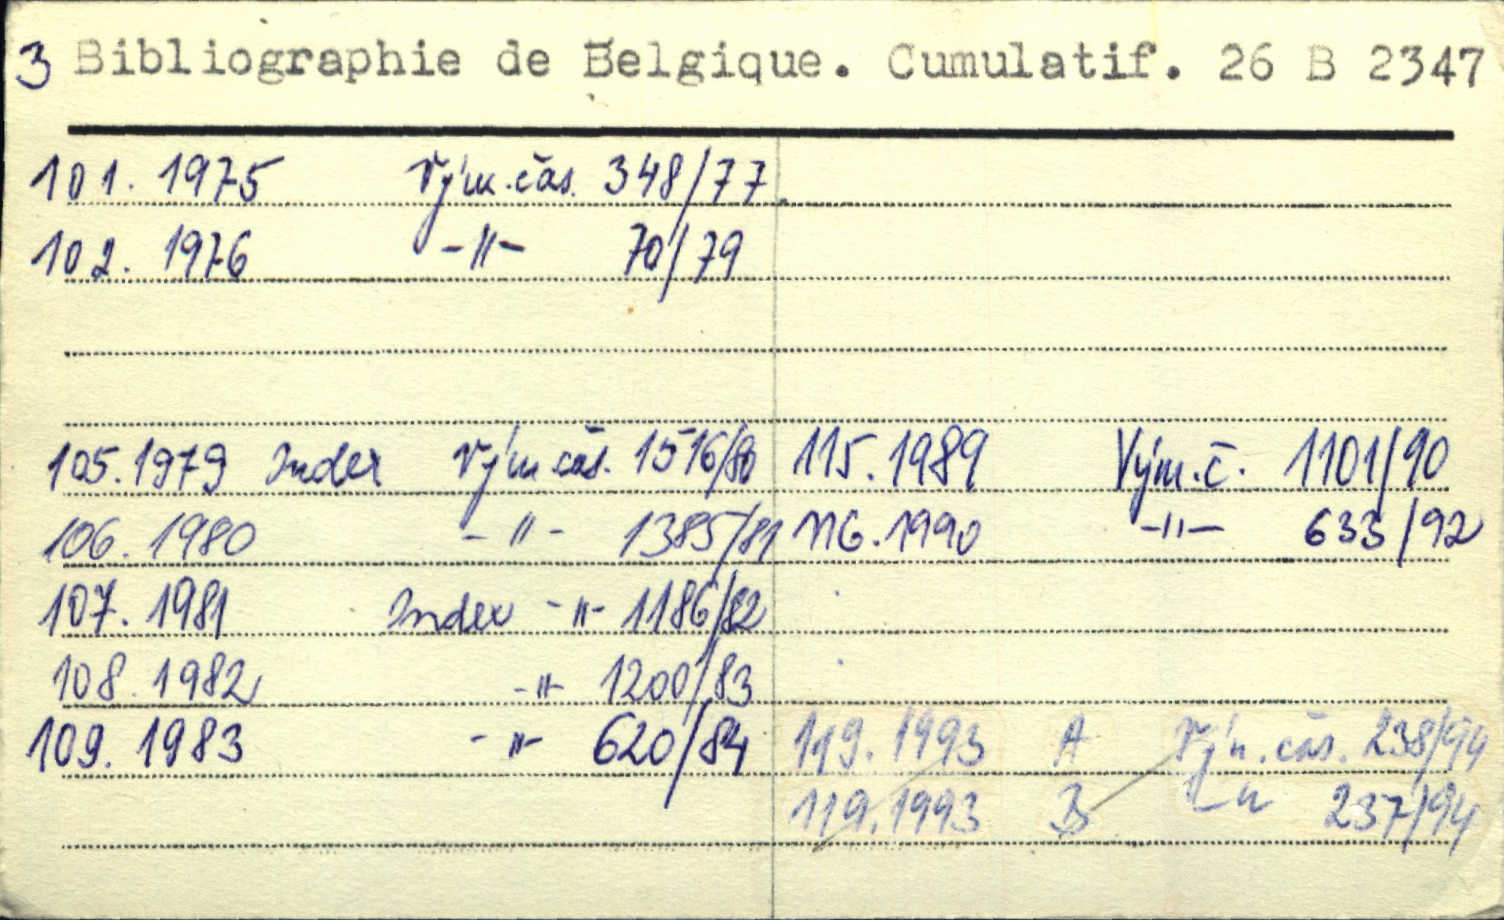 3 Bibliographie de Belgique. Cumulatif. 26 B 2347
101. 1975 Vým. čas. 348/77
102. 1976 -"- 70/79
105. 1979 Index Vým. čas. 1516/80
106. 1980 -"- 1385/81
107. 1981 Index -"- 1186/82
108. 1982 -"- 1200/83
109. 1983 -"- 620/84
115. 1989 Vým. č. 1101/90
116. 1990 -"- 633/92
119. 1993 A Vým. čas. 238/94
119. 1993 B -"- 237/94